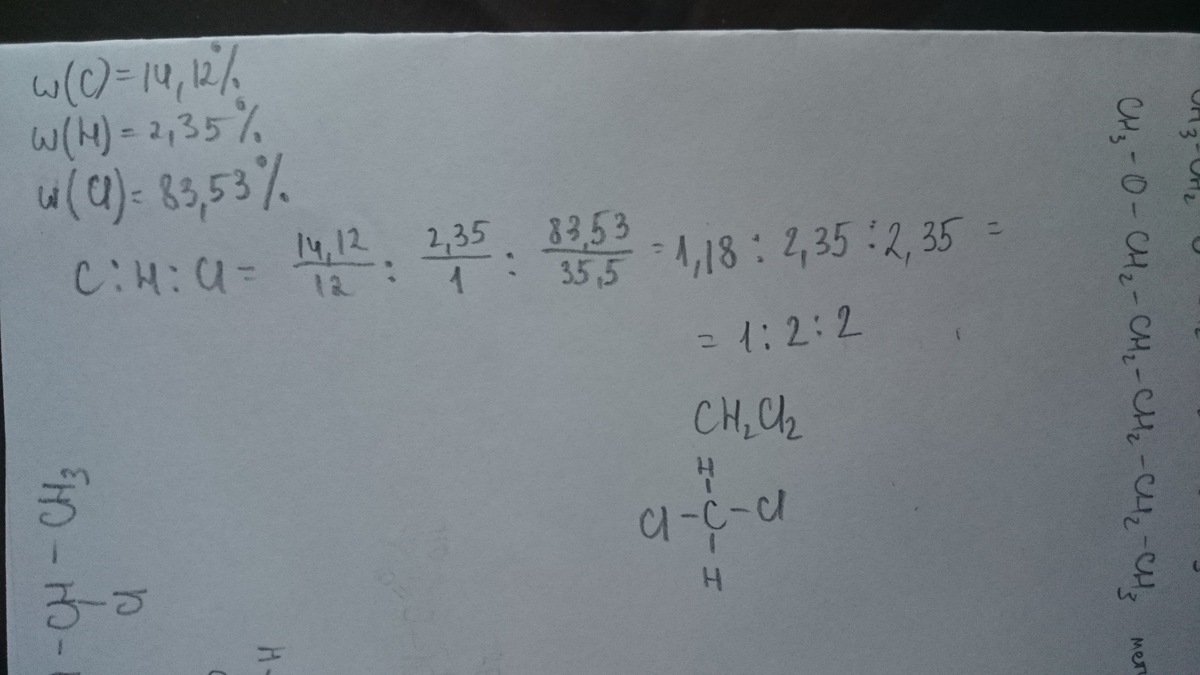 w(C) = 14,12%
w(H) = 2,35%
w(Cl) = 83,53%
C : H : Cl = 14,12/12 : 2,35/1 : 83,53/35,5 = 1,18 : 2,35 : 2,35 =
= 1 : 2 : 2
CH₂Cl₂
H
Cl – C – Cl
H
– CH – CH₃
Cl
– H
CH₃ – O – CH₂ – CH₂ – CH₂ – CH₂ – CH₃
CH₃ – CH₂